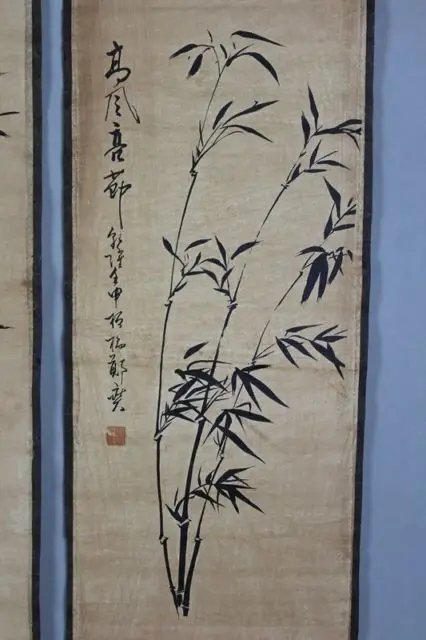 高風亮節乾隆壬申板橋鄭燮